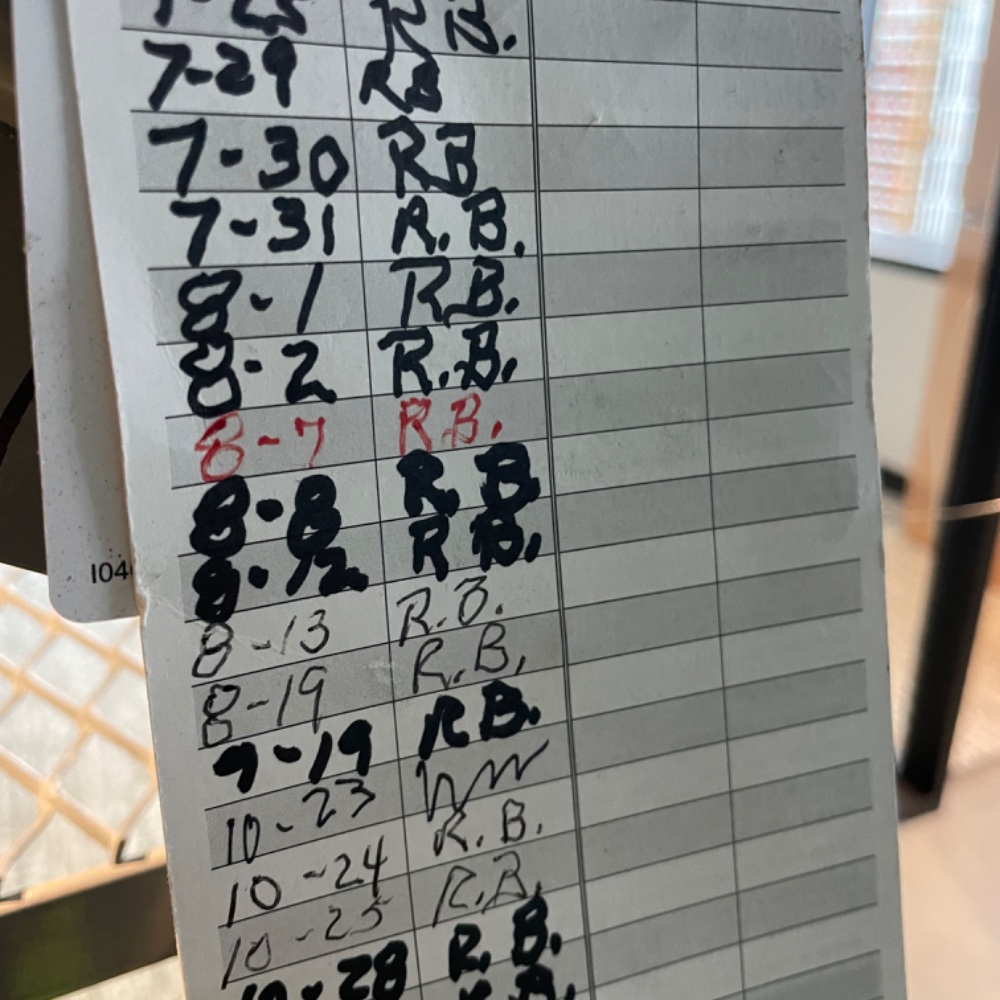 7-25 R B.
7-29 RB
7-30 RB
7-31 R. B.
8-1 R.B.
8-2 R.B.
8-7 R.B.
8-8 R. B.
8-12 R B.
104
8-13 R.B.
8-19 R.B.
9-19 R B.
10-23
10-24 R. B.
10-25 R.B.
10-28 R. B.